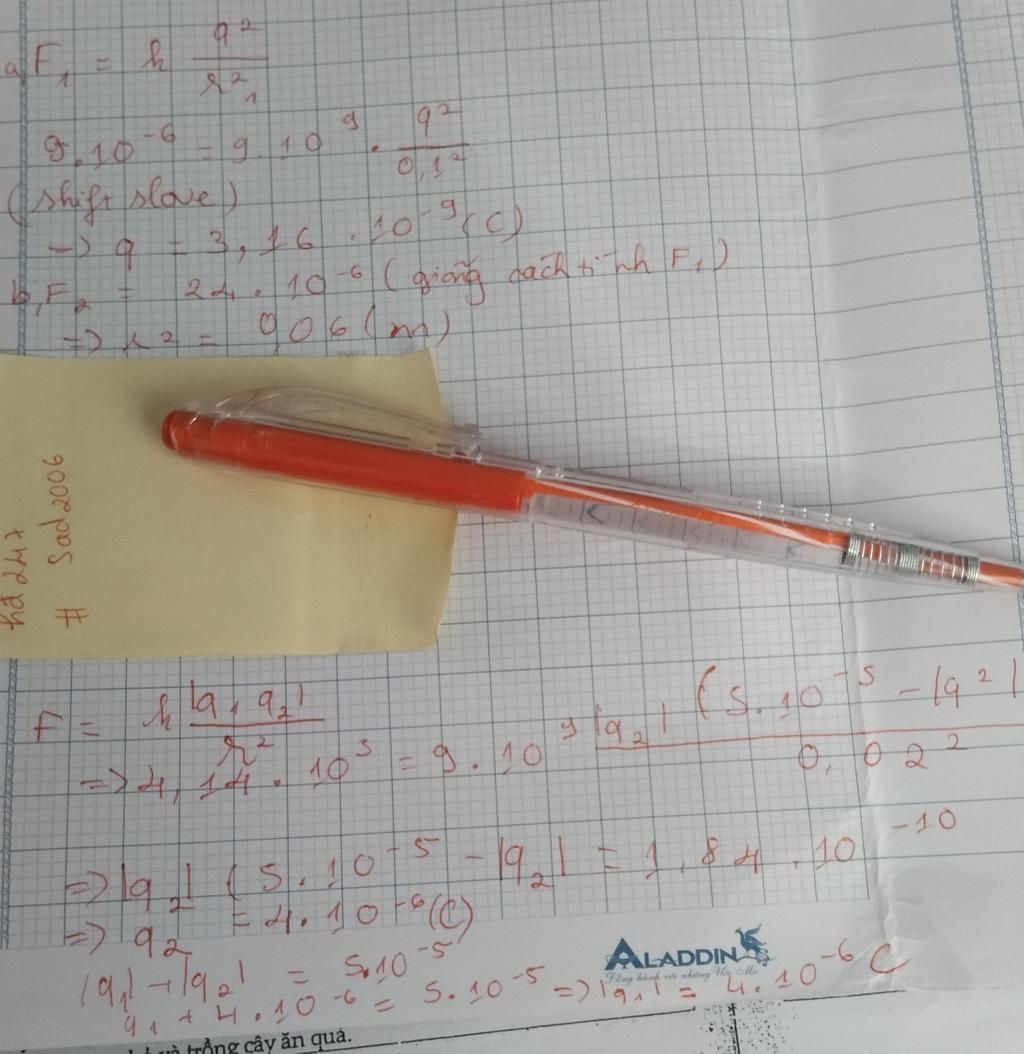 a, F₁ = k q²/r²₁
9.10⁻⁶ = 9.10⁹ . q²/0,1²
(shift slove)
→ q = 3,16 .10⁻⁹ (C)
b, F₂ = 24.10⁻⁶ (giống cách tính F₁)
=> r² = 0,06 (m)
# Sad2006
F = k |q₁ q₂|/r²
=> 4,14.10³ = 9.10⁹ |q₂| (5.10⁻⁵ - |q²|/0,02²
=> |q₂| (5.10⁻⁵ - |q₂| = 1,84.10⁻¹⁰
=> q₂ = 4.10⁻⁶ (C)
|q₁| + |q₂| = 5.10⁻⁵
q₁ + 4.10⁻⁶ = 5.10⁻⁵ => |q₁| = 4.10⁻⁶ C
ALADDIN
trồng cây ăn quả.